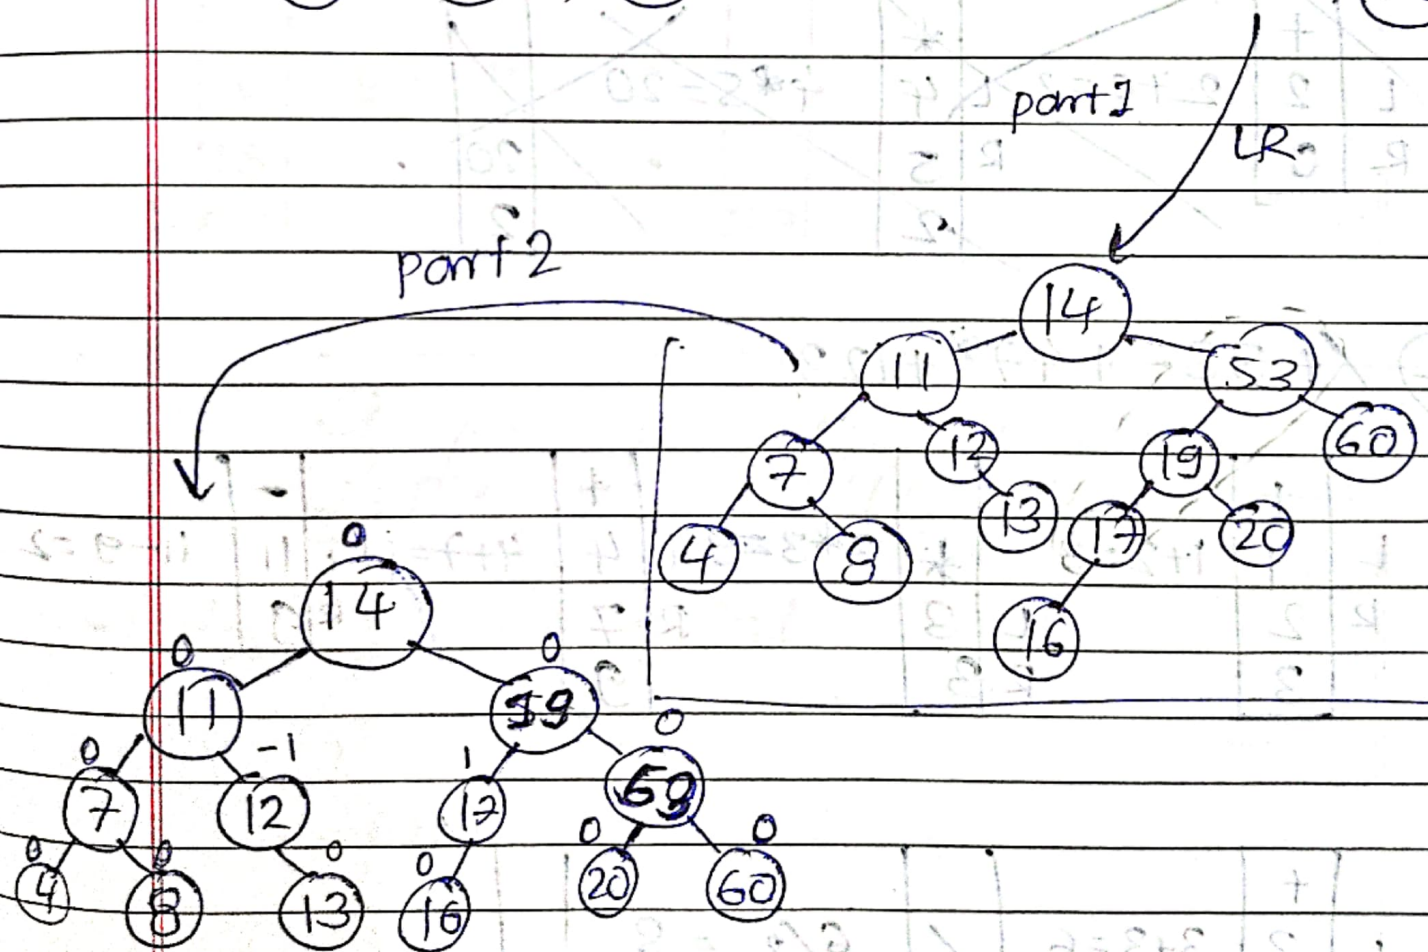 part 1
LR
part 2
14
11 53
7 12 19 60
4 8 13 17 20
16
0
14
0 0
11 19
0 -1 1 0
7 12 17
0 0 0 0 0 0
4 8 13 16 20 60